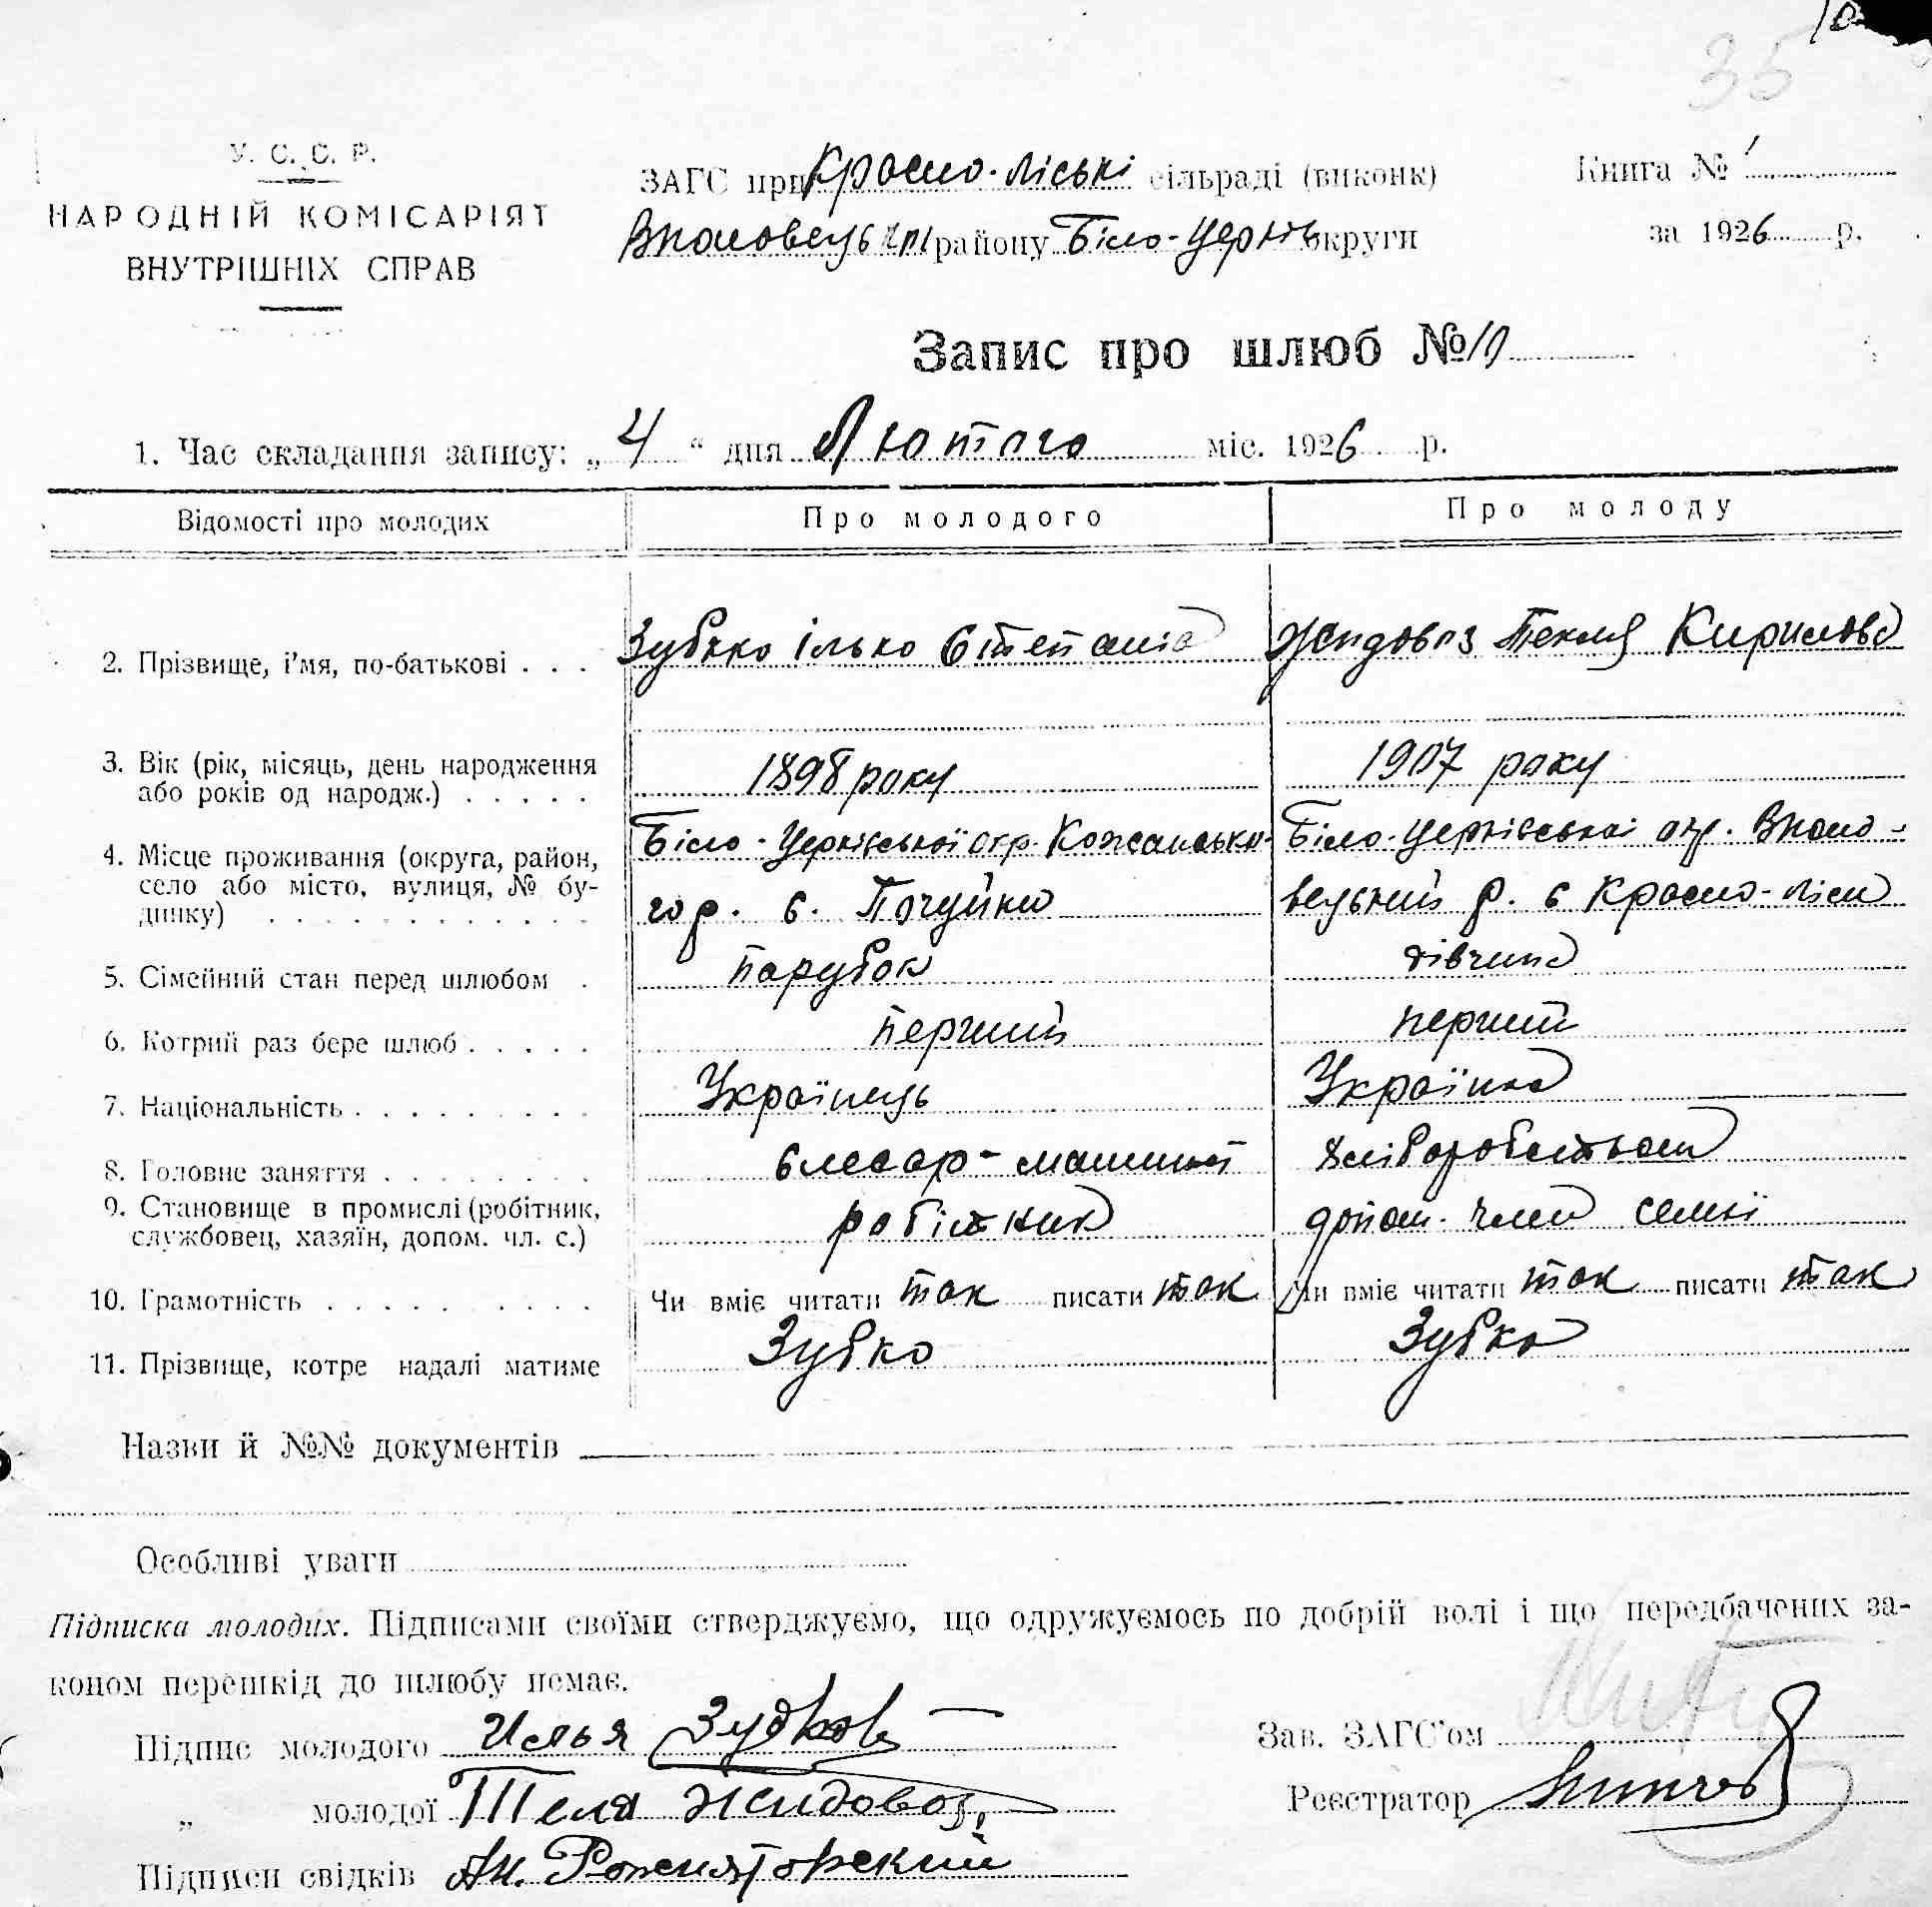 35
У. С. С. Р.
НАРОДНІЙ КОМІСАРІЯТ
ВНУТРІШНІХ СПРАВ
ЗАГС при Красно-Ліські сільраді (виконк)
району Біло-Церків округи
Книга № 1
за 1926 р.
Запис про шлюб № 10
1. Час складання запису: „4“ дня Лютого міс. 1926 р.
Відомості про молодих
Про молодого
Про молоду
2. Прізвище, і’мя, по-батькові . . .
Зубко Ілько Степанів
Жидовоз Текля Кирилова
3. Вік (рік, місяць, день народження
або років од народж.) . . . . .
1898 року
1907 року
4. Місце проживання (округа, район,
село або місто, вулиця, № бу-
динку) . . . . . . . . . . . .
Біло-Церківської окр. Кожансько-
го р. с. Почуйки
Біло-Церківської окр.
р. с Красно-Ліси
5. Сімейний стан перед шлюбом .
парубок
дівчина
6. Котрий раз бере шлюб . . . . .
перший
перший
7. Національність . . . . . . . . .
Українець
Українка
8. Головне заняття . . . . . . . .
слесар-машиніст
хліборобством
9. Становище в промислі (робітник,
службовец, хазяїн, допом. чл. с.)
робітник
допом. член семкі
10. Грамотність . . . . . . . . . .
Чи вміє читати так писати так
Чи вміє читати так писати так
11. Прізвище, котре надалі матиме
Зубко
Зубко
Назви й №№ документів
Особливі уваги
Підписка молодих. Підписами своїми стверджуємо, що одружуємось по добрій волі і що передбачених за-
коном перешкід до шлюбу немає.
Підпис молодого Илья Зубков
„ молодої Теля Жидовоз,
Підписи свідків Ан. Рожнятовский
Зав. ЗАГС’ом
Реєстратор